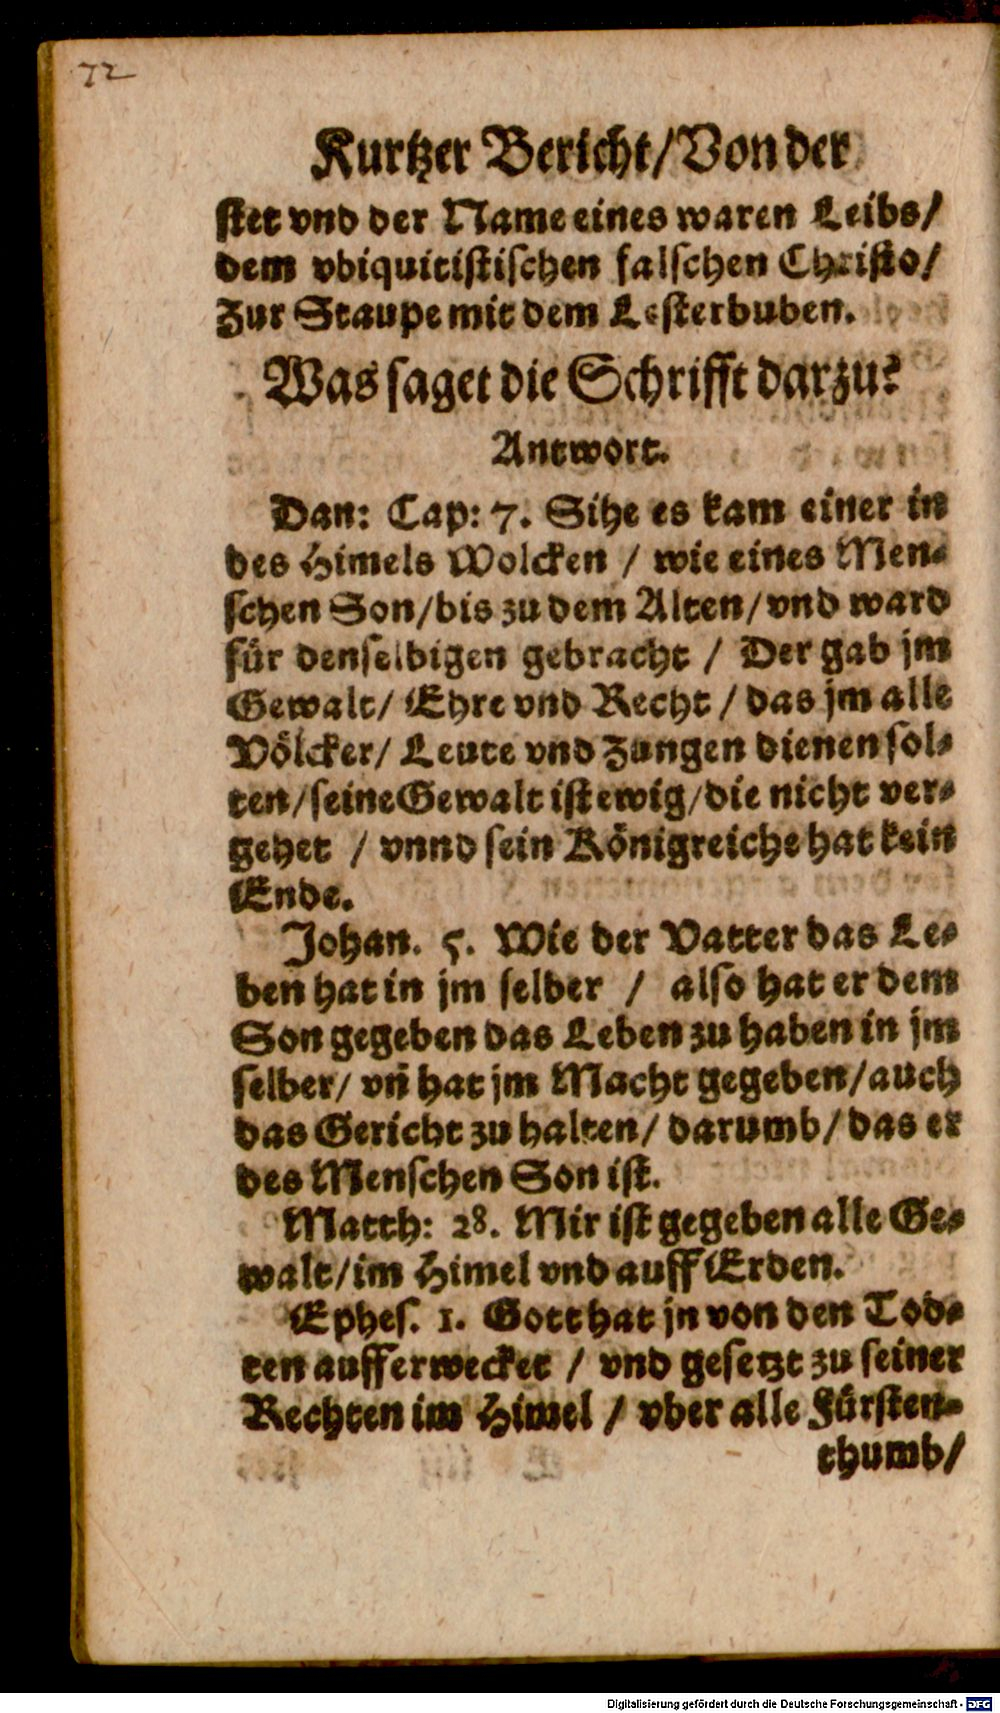 72
Kurtzer Bericht/Von der
stet vnd der Name eines waren Leibs/
dem vbiquitistischen falschen Christo/
Zur Staupe mit dem Lesterbuben.
Was saget die Schrifft darzu?
Antwort.
Dan: Cap: 7. Sihe es kam einer in
des Himels Wolcken / wie eines Men-
schen Son/bis zu dem Alten/vnd ward
für denselbigen gebracht / Der gab jm
Gewalt/ Ehre vnd Recht / das jm alle
Völcker/ Leute vnd Zungen dienen sol-
ten/seine Gewalt ist ewig/die nicht ver-
gehet / vnnd sein Königreiche hat kein
Ende.
Johan. 5. Wie der Vatter das Le-
ben hat in jm selber / also hat er dem
Son gegeben das Leben zu haben in jm
selber/ vñ hat jm Macht gegeben/auch
das Gericht zu halten/ darumb/ das er
des Menschen Son ist.
Matth: 28. Mir ist gegeben alle Ge-
walt/im Himel vnd auff Erden.
Ephes. 1. Gott hat jn von den Tod-
ten aufferwecket / vnd gesetzt zu seiner
Rechten im Himel / vber alle Fürsten-
thumb/
Digitalisierung gefördert durch die Deutsche Forschungsgemeinschaft - DFG